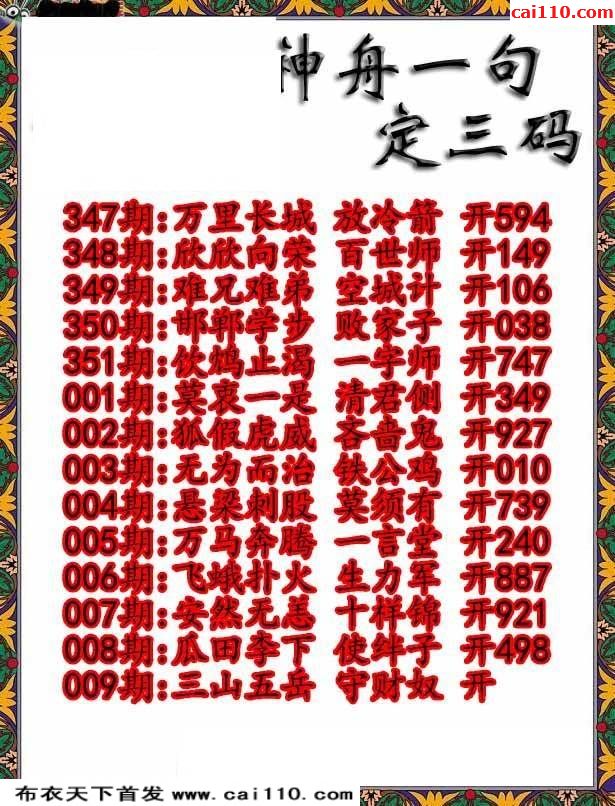 cai110.com
神舟一句
定三码
347期:万里长城 放冷箭 开594
348期:欣欣向荣 百世师 开149
349期:难兄难弟 空城计 开106
350期:邯郸学步 败家子 开038
351期:饮鸩止渴 一字师 开747
001期:莫衷一是 清君侧 开349
002期:狐假虎威 吝啬鬼 开927
003期:无为而治 铁公鸡 开010
004期:悬梁刺股 莫须有 开739
005期:万马奔腾 一言堂 开240
006期:飞蛾扑火 生力军 开887
007期:安然无恙 十样锦 开921
008期:瓜田李下 使绊子 开498
009期:三山五岳 守财奴 开
布衣天下首发 www.cai110.com